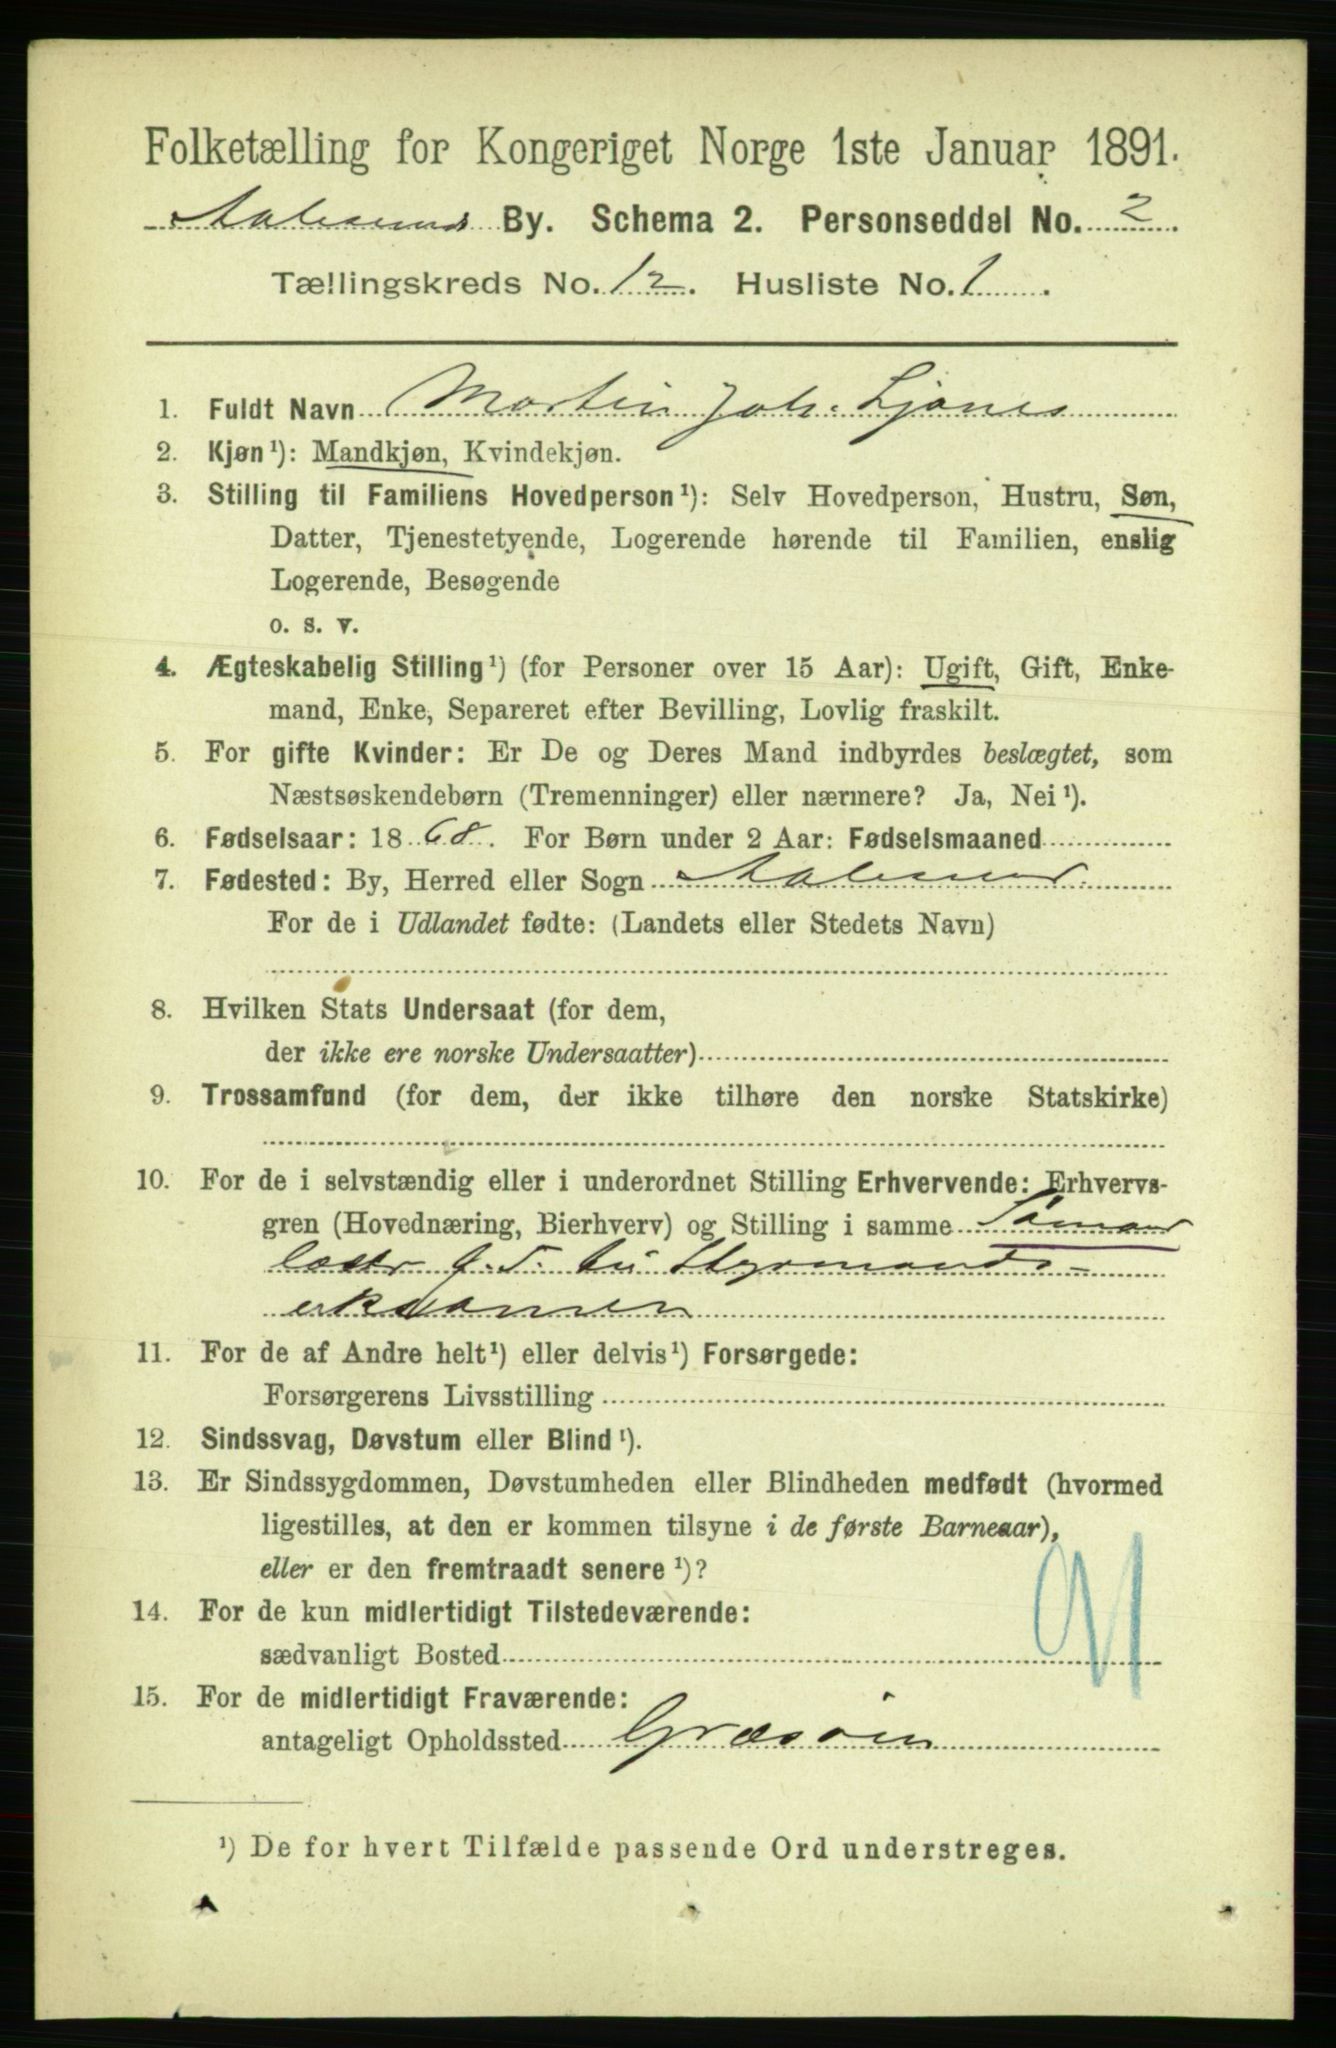 Folketælling for Kongeriget Norge 1ste Januar 1891.
Aalesund By. Schema 2. Personseddel No. 2
Tællingskreds No. 12. Husliste No. 1.
1. Fuldt Navn Martin Joh. Ljønes
2. Kjøn¹): Mandkjøn, Kvindekjøn.
3. Stilling til Familiens Hovedperson¹): Selv Hovedperson, Hustru, Søn,
Datter, Tjenestetyende, Logerende hørende til Familien, enslig
Logerende, Besøgende
o. s. v.
4. Ægteskabelig Stilling¹) (for Personer over 15 Aar): Ugift, Gift, Enke-
mand, Enke, Separeret efter Bevilling, Lovlig fraskilt.
5. For gifte Kvinder: Er De og Deres Mand indbyrdes beslægtet, som
Næstsøskendebørn (Tremenninger) eller nærmere? Ja, Nei¹).
6. Fødselsaar: 1868. For Børn under 2 Aar: Fødselsmaaned
7. Fødested: By, Herred eller Sogn Aalesund
For de i Udlandet fødte: (Landets eller Stedets Navn)
8. Hvilken Stats Undersaat (for dem,
der ikke ere norske Undersaatter)
9. Trossamfund (for dem, der ikke tilhøre den norske Statskirke)
10. For de i selvstændig eller i underordnet Stilling Erhvervende: Erhvervs-
gren (Hovednæring, Bierhverv) og Stilling i samme Sømand
læser f. T. til Styrmands-
eksamen
11. For de af Andre helt¹) eller delvis¹) Forsørgede:
Forsørgerens Livsstilling
12. Sindssvag, Døvstum eller Blind¹).
13. Er Sindssygdommen, Døvstumheden eller Blindheden medfødt (hvormed
ligestilles, at den er kommen tilsyne i de første Barneaar),
eller er den fremtraadt senere¹)?
14. For de kun midlertidigt Tilstedeværende:
sædvanligt Bosted
15. For de midlertidigt Fraværende:
antageligt Opholdssted Græsøen
¹) De for hvert Tilfælde passende Ord understreges.